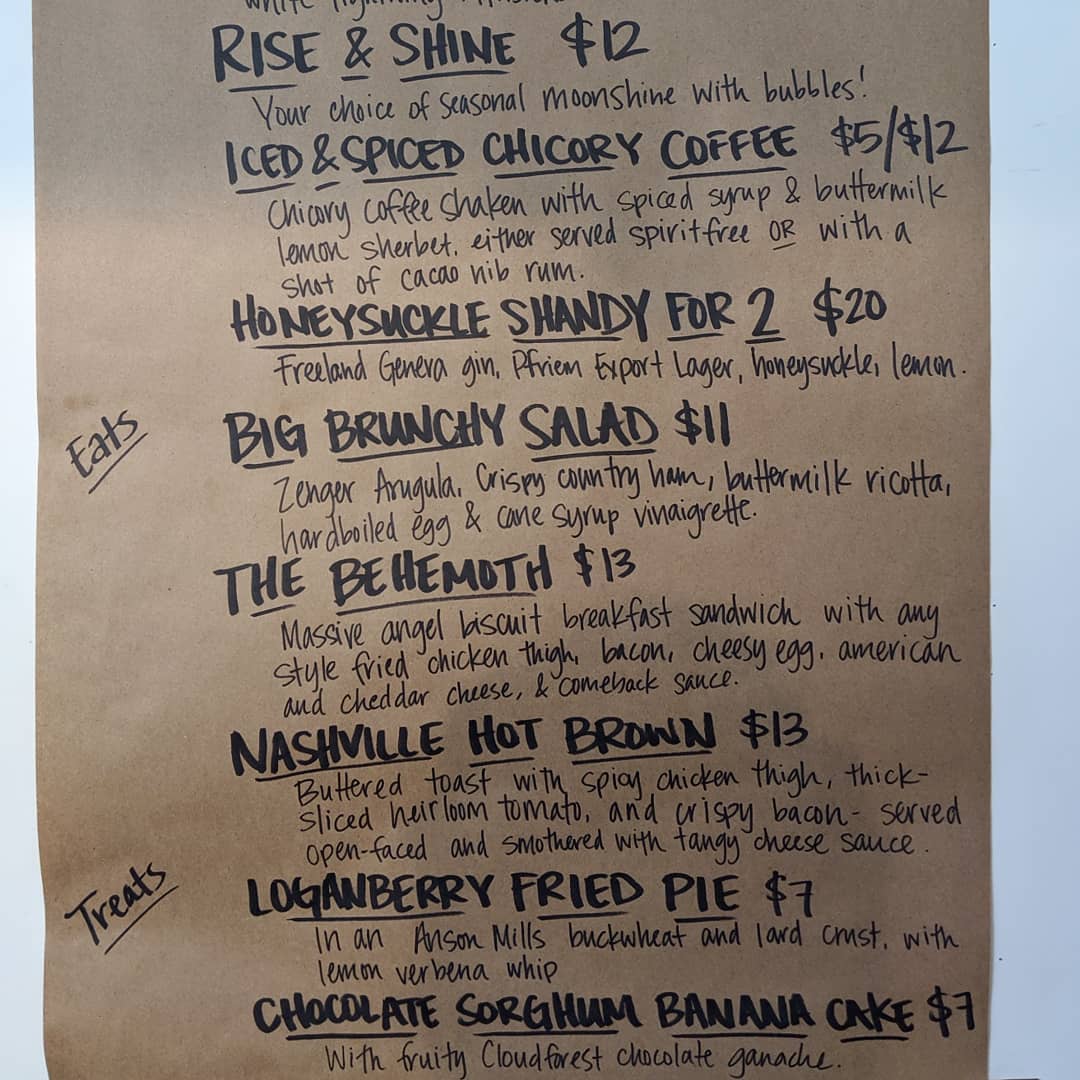 RISE & SHINE $12
Your choice of seasonal moonshine with bubbles!
ICED & SPICED CHICORY COFFEE $5/$12
Chicory coffee shaken with spiced syrup & buttermilk
lemon sherbet, either served spiritfree OR with a
shot of cacao nib rum.
HONEYSUCKLE SHANDY FOR 2 $20
Freeland Geneva gin, Pfriem Export Lager, honeysuckle, lemon.
Eats
BIG BRUNCHY SALAD $11
Zenger Arugula, Crispy country ham, buttermilk ricotta,
hardboiled egg & cane syrup vinaigrette.
THE BEHEMOTH $13
Massive angel biscuit breakfast sandwich with any
style fried chicken thigh, bacon, cheesy egg, american
and cheddar cheese, & comeback sauce.
NASHVILLE HOT BROWN $13
Buttered toast with spicy chicken thigh, thick-
sliced heirloom tomato, and crispy bacon- served
open-faced and smothered with tangy cheese sauce.
Treats
LOGANBERRY FRIED PIE $7
In an Anson Mills buckwheat and lard crust, with
lemon verbena whip
CHOCOLATE SORGHUM BANANA CAKE $7
With fruity Cloudforest chocolate ganache.